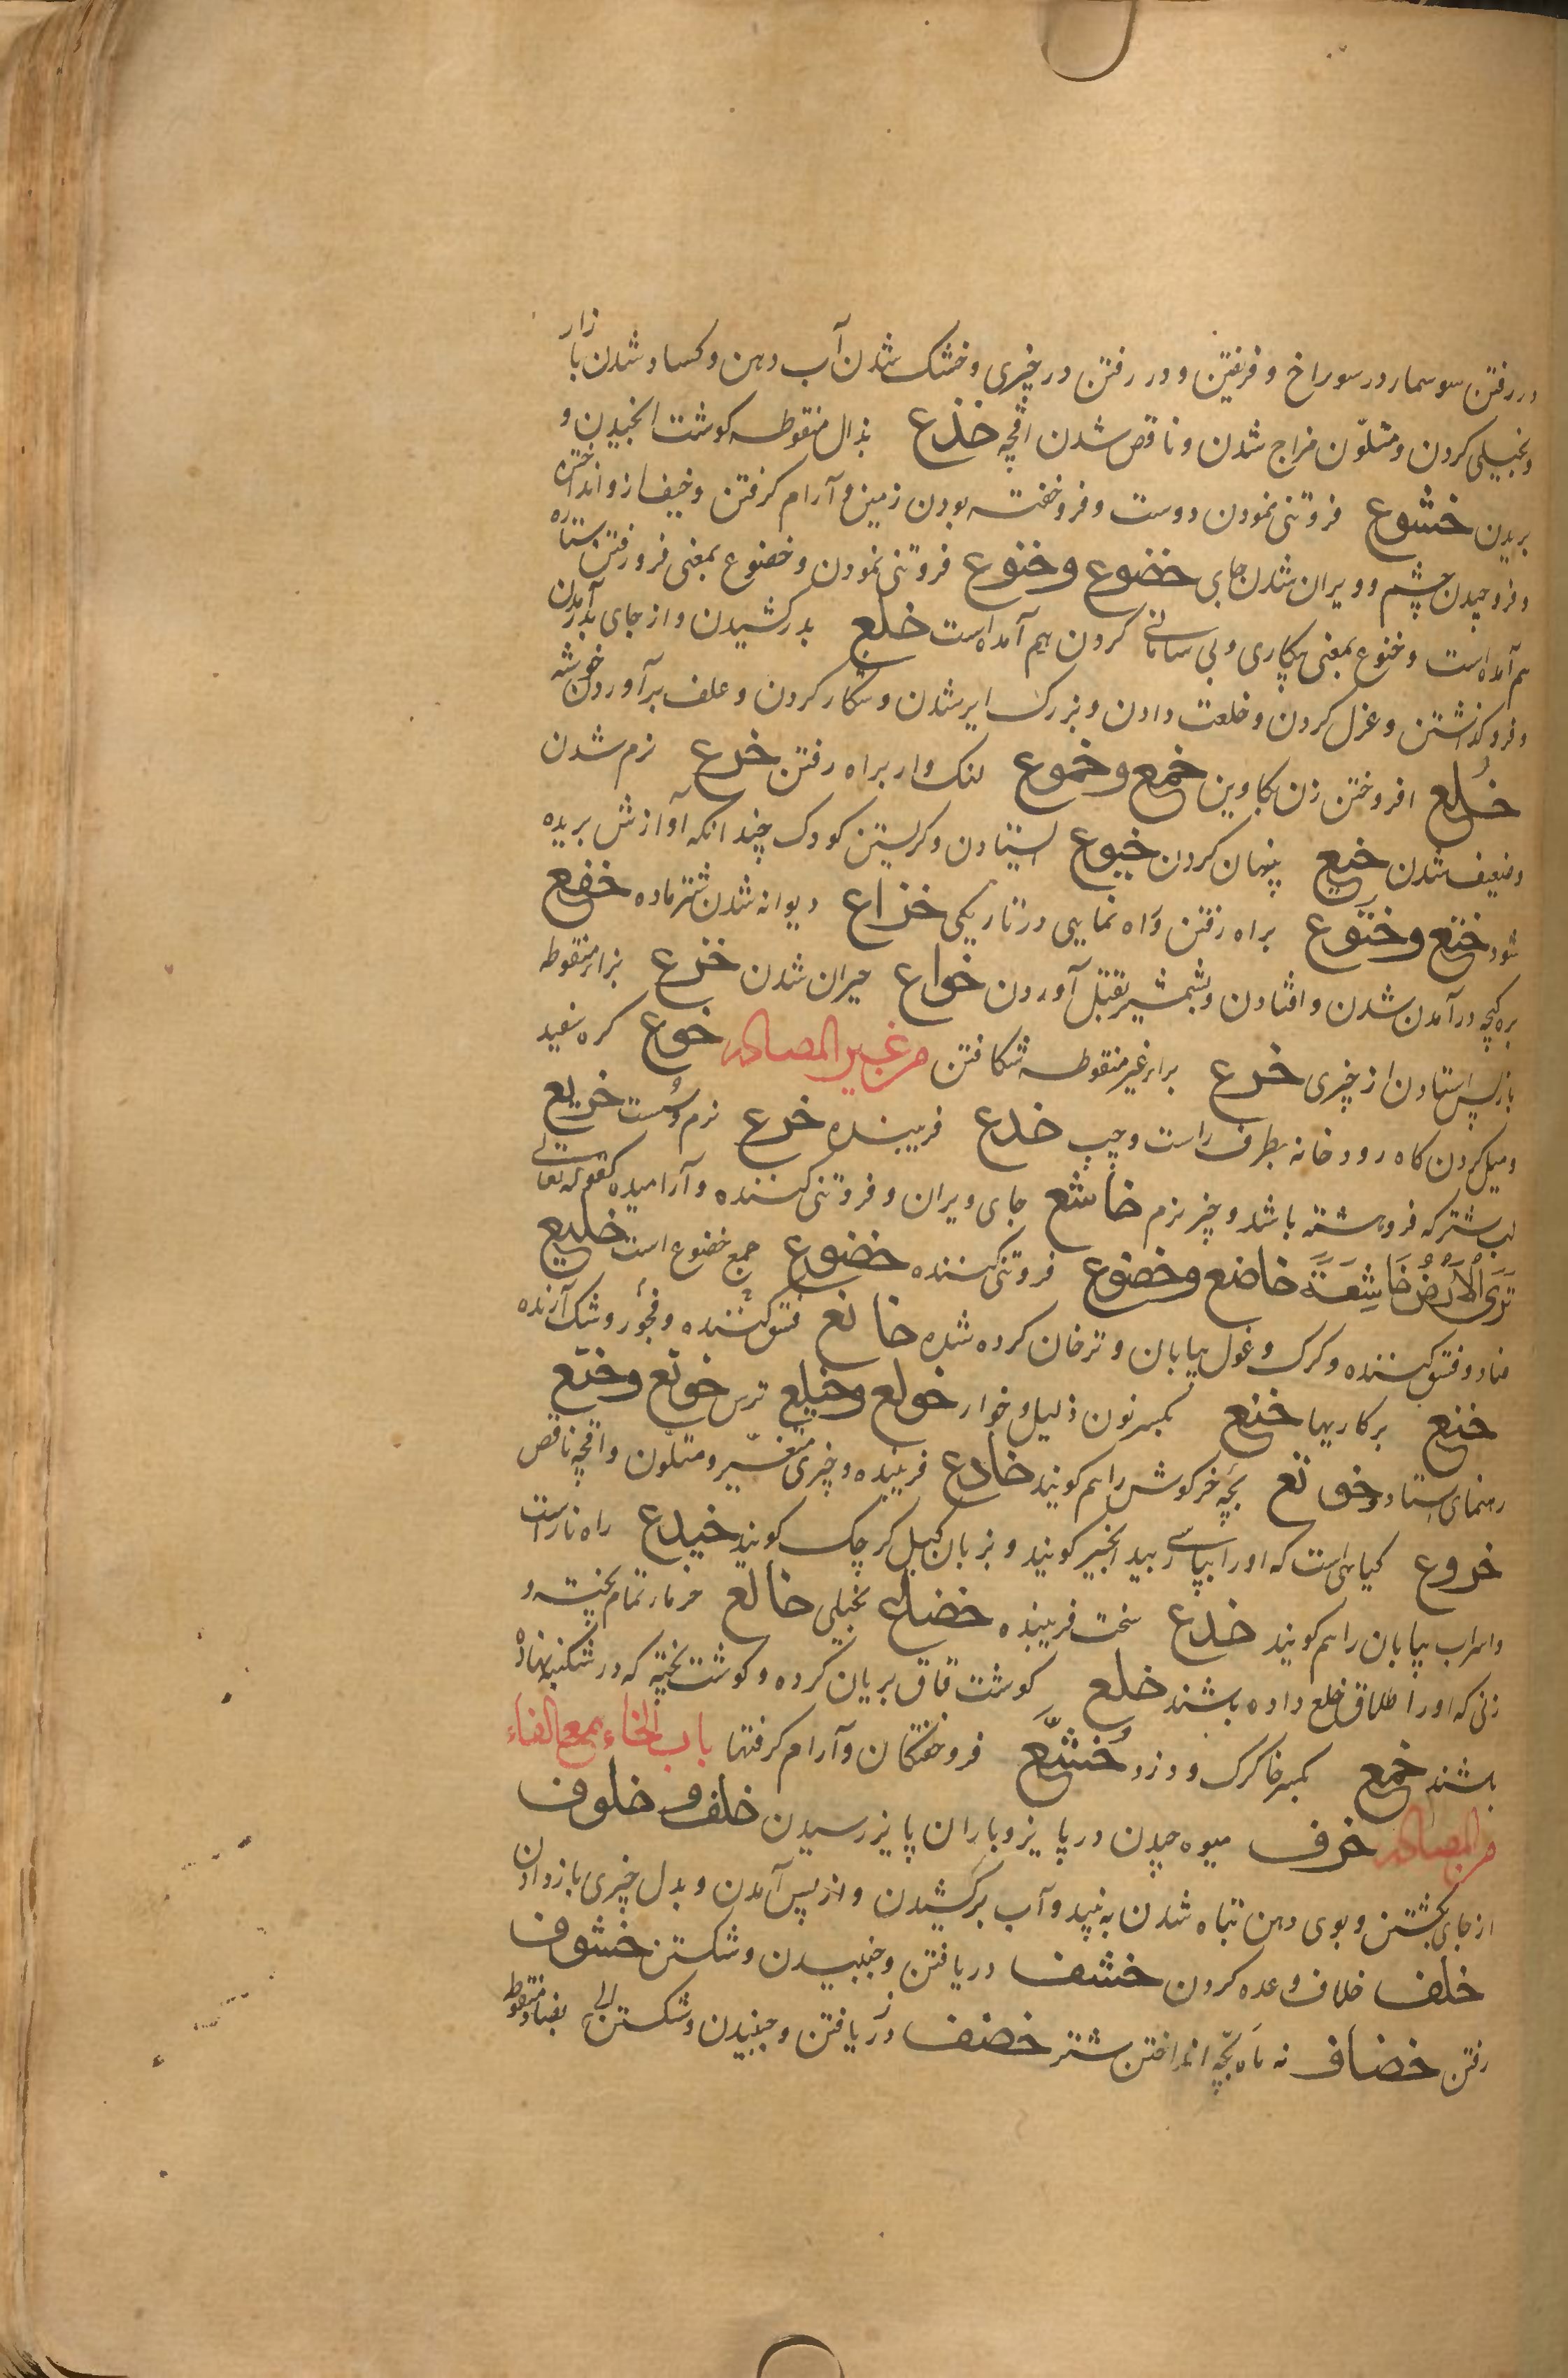 در رفتن سوسمار در سوراخ و فریفتن و در رفتن در چیزی و خشک شدن آب دهن و کساد شدن بازار
و بخیلی کردن و متلوّن مزاج شدن و ناقص شدن اقچه خذع بذال منقوطه کوشت انجیدن و
بریدن خشوع فروتنی نمودن دوست و فروخفته بودن زمین و آرام کرفتن و انداختن
و فروچیدن چشم و ویران شدن جای خضوع وخنوع فروتنی نمودن و خضوع بمعنی فرو رفتن ستاره
هم آمده است و خنوع بمعنی بیکاری و بی سامانی کردن هم آمده است خلع بدر کشیدن و از جای بدر آمدن
و فرو کذاشتن و عزل کردن و خلعت دادن و بزرک ایر شدن و شکار کردن و علف برآوردن خوشه
خُلع افروختن زن بکاوین خمع وخموع لنک وار براه رفتن خرع نرم شدن
و ضعیف شدن خبع پنهان کردن خبوع ایستادن و کریستن کودک چندانکه آوازش بریده
شود ختع وختوع براه رفتن و راه نمایی در تاریکی خزاع دیوانه شدن شتر ماده خفع
بره کیچه درآمدن شدن و افتادن و بشمشیر بقتل آوردن خواع حیران شدن خزع بزاء منقوطه
بازپس استادن از چیزی خرع براء غیر منقوطه شکافتن من غیر المصادر خوع کره سفید
و میل کردن کاه رودخانه بطرف راست و چپ خدع فریبنده خرع نرم و سست خریع
لب شتر که فروهشته باشد و چیز نرم خاشع جای ویران و فروتنی کننده و آرامیده کقوله تعالی
تَرَی الْأَرْضَ خَاشِعَةً خاضع وخضوع فروتنی کننده خضوع جمع خضوع است خلیع
فساد و فسق کننده و کرک و غول بیابان و ترخان کرده شده خانع فسق کننده و فجور و شک آرنده
خنع برکاریها خنع بکسر نون ذلیل و خوار خولع وخیلع ترس خوتع وختع
رهنمای استاد و خوتع بچه خرکوش را هم کویند خادع فریبنده و چیزی متغیّر و متلوّن و اقچه ناقص
خروع کیاهی است که او را بپارسی بید انجیر کویند و بزبان کیل کرچک کویند خیدع راه ناراست
و سراب بیابان را هم کویند خدع سخت فریبنده خضاع بخیلی خالع خرمار تمام پخته و
زنی که او را طلاق خلع داده باشند خلع کوشت قاق بریان کرده و کوشت پخته که در شکنبه نهاده
باشند خمع بکسر خا کرک و دزد خُشَّع فروخفتکان و آرام کرفتها باب الخاء مع الفاء
من المصادر خرف میوه چیدن در پاییز و باران پاییز رسیدن خلف و خلوف
از جای بکشتن و بوی دهن تباه شدن به نبید و آب برکشیدن و از پس آمدن و بدل چیزی باز دادن
خلف خلاف وعده کردن خشف دریافتن و جنبیدن و شکستن خشوف
رفتن خضاف نه ماه بچّه انداختن شتر خضف دریافتن و جنبیدن و شکستن بضاد منقوطه